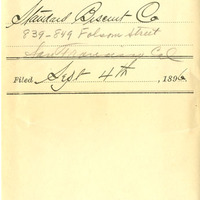 Standard Biscuit Co
839-849 Folsom Street
San Francisco Cal
Filed Sept 4th, 1896